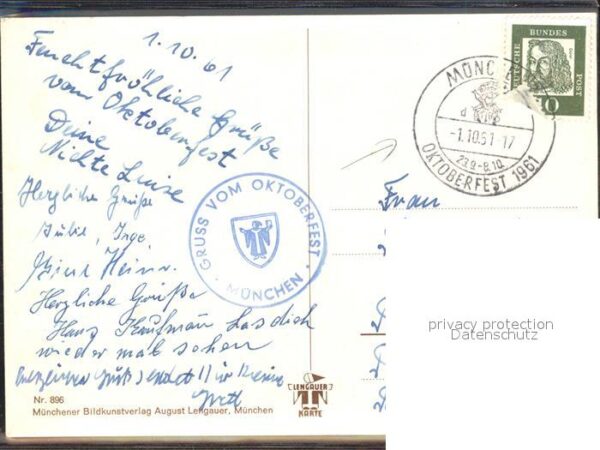 1.10.61
Feuchtfröhliche Grüße
vom Oktoberfest
Deine
Nichte Luise
Herzliche Grüße
Inge.
Herzliche Grüße
Hans Kaufmann Lass dich
wieder mal sehen
GRUSS VOM OKTOBERFEST
MÜNCHEN
DEUTSCHE BUNDESPOST
10
MÜNCHEN
d
-1.10.61-17
23.9-8.10.
OKTOBERFEST 1961
Frau
privacy protection
Datenschutz
LENGAUER
KARTE
Nr. 896
Münchener Bildkunstverlag August Lengauer, München